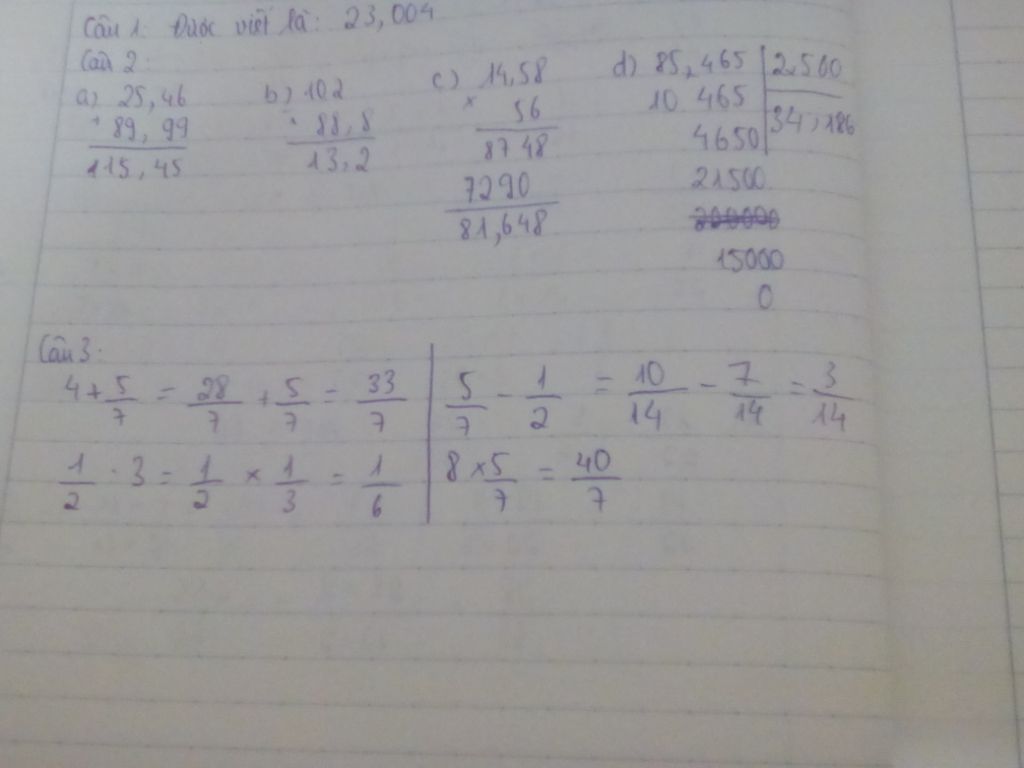 Câu 1: Được viết là: 23,004
Câu 2:
a) 25,46
+ 89,99
115,45
b) 102
- 88,8
13,2
c) 14,58
x 56
8748
7290
81,648
d) 85,465 | 2,500
10 465 | 34,186
4650
21500
15000
0
Câu 3:
4 + 5/7 = 28/7 + 5/7 = 33/7
5/7 - 1/2 = 10/14 - 7/14 = 3/14
1/2 : 3 = 1/2 x 1/3 = 1/6
8 x 5/7 = 40/7